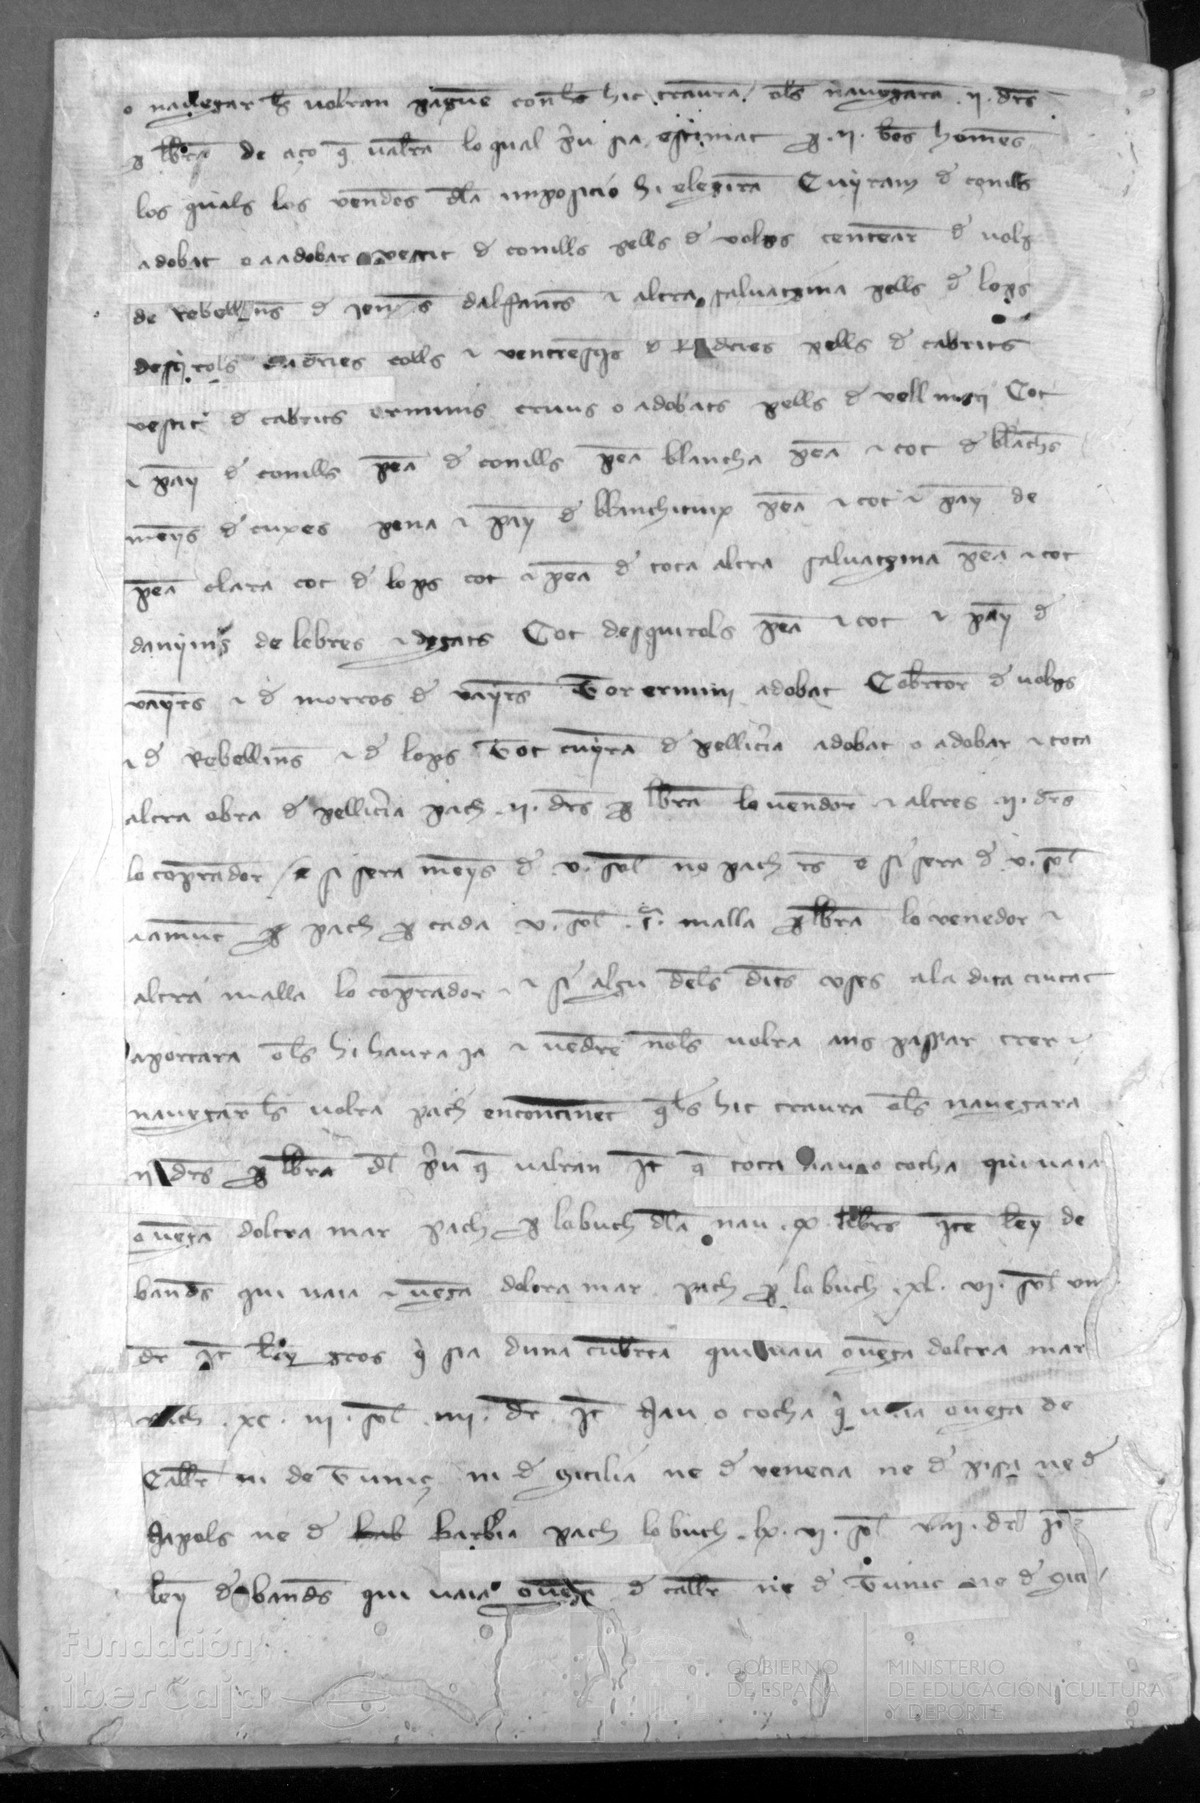 o navegar los volran paguen con los hic trauran o los navegaran .ii. drs
p lbra de aço q valra lo qual pru sia estimat p .ii. bos homes
los quals los venedos dla imposicio hi elegiran Cuyram d conills
adobat o a adobar vestit d conills pells d volps centenar d volps
de Rebellins d dalfants z altra salvatgina pells d lops
desquirols colls z ventresqs d pells d cabrits
vestit d cabrits erminis cruus o adobats pells d vell mari Tot
z pay d conills pena d conills pena blancha pena z tot d blanchs
menys d cuxes pena z pay d pena z tot z pay de
pena clara tot d lops tot z pena d tota altra salvatgina pena z tot
danyins de lebres z de gats Tot desquirols pena z tot z pay d
vayrs z d morros d vayrs Tot ermini adobat Cobrtor d volps
z d Rebellins z d lops Tot cuyram d pellicia adobat o adobar z tota
altra obra d pellicia pach .ii. drs p lbra lo venedor z altres .ii. drs
lo coprador / e si sera menys d .v. sol no pach res e si sera d .v. sol
z amunt pach p cada .v. sol .i. malla p lbra lo venedor z
altra malla lo coprador z si algu dels dits coses a la dita ciutat
aportara o los hi haura ja z vendre nols volra ans passar trer z
navegar los volra pach encontinent qls hic traura o los navegara
ii drs p lbra dl pru q valran It q tota nau o cocha qui vaia
o venga doltra mar pach p lo buch dla nau .x. lbrs Ite leny de
bands qui vaia z venga doltra mar pach p lo buch .xl. vi. sol vn
dr It leny gros q sia duna cubrta qui vaia o venga doltra mar
pach .xc. iii. sol .iiii. dr It Nau o cocha q vaia o venga de
Callr ni de Tuniç ni d Sicilia ne d Venecia ne d Pisa ne d
Napols ne d Barbria pach lo buch .lx. vi. sol viii. dr It
leny d bands qui vaia o venga d Callr ne d Tunic ne d Sici
Fundación
iberCaja
GOBIERNO
DE ESPAÑA
MINISTERIO
DE EDUCACIÓN, CULTURA
Y DEPORTE